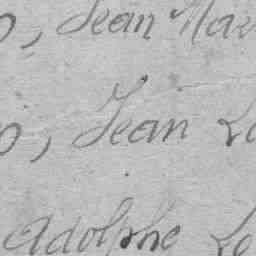 , Jean Mar
, Jean Lo
Adolphe Le